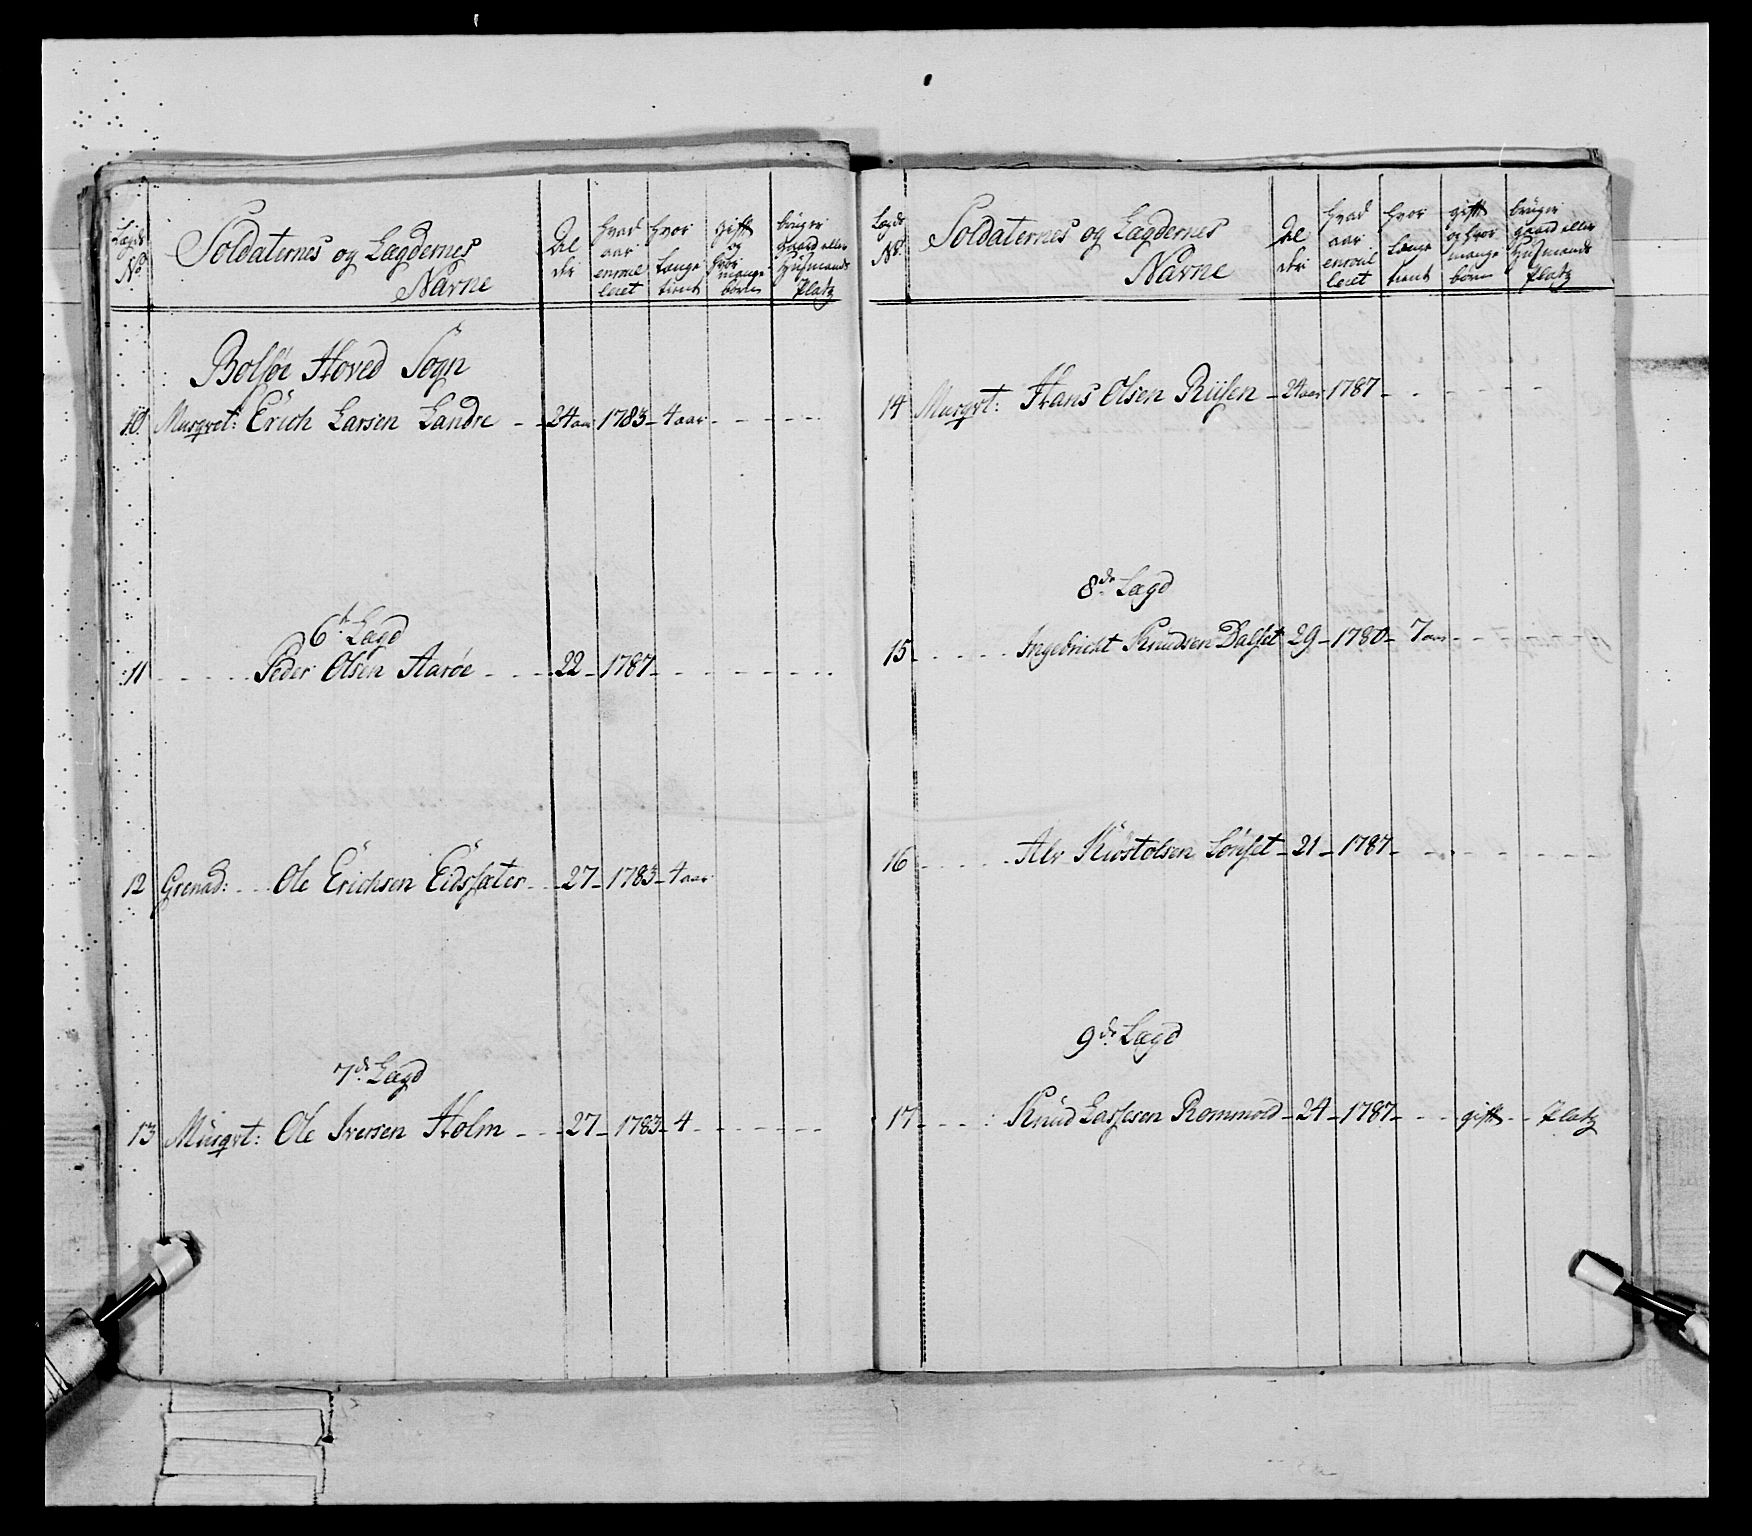 Lægds No
Soldaternes og Lægdernes Navne
Al der
hvad aar enroul leret
hvor længe tient
gift og hvor mange børn
bruger gaard eller Huusmands Platz
Bolsøe Hoved Sogn
10 Musqvet: Erich Larsen Landre 24 aar 1783 4 aar
6te Lægd
11 Peder Olsen Aarøe 22 1787
12 Grenad: Ole Erichsen Eidssæter 27 1783 4 aar
7de Lægd
13 Musqvt: Ole Iversen Holm 27 1783 4
Lægds No.
Soldaternes og Lægdernes Navne
Al der
hvad aar enroul leret
hvor længe tient
gift og hvor mange børn
bruger gaard eller Huusmands Platz
14 Musqvt: Hans Olsen Riisen 24 aar 1787
8de Lægd
15 Ingebricht Knudsen Dalset 29 1780 7 aar
16 Alv Siwstolsen Sønset 21 1787
9de Lægd
17 Knud Lassesen Rommold 24 1787 gift Platz